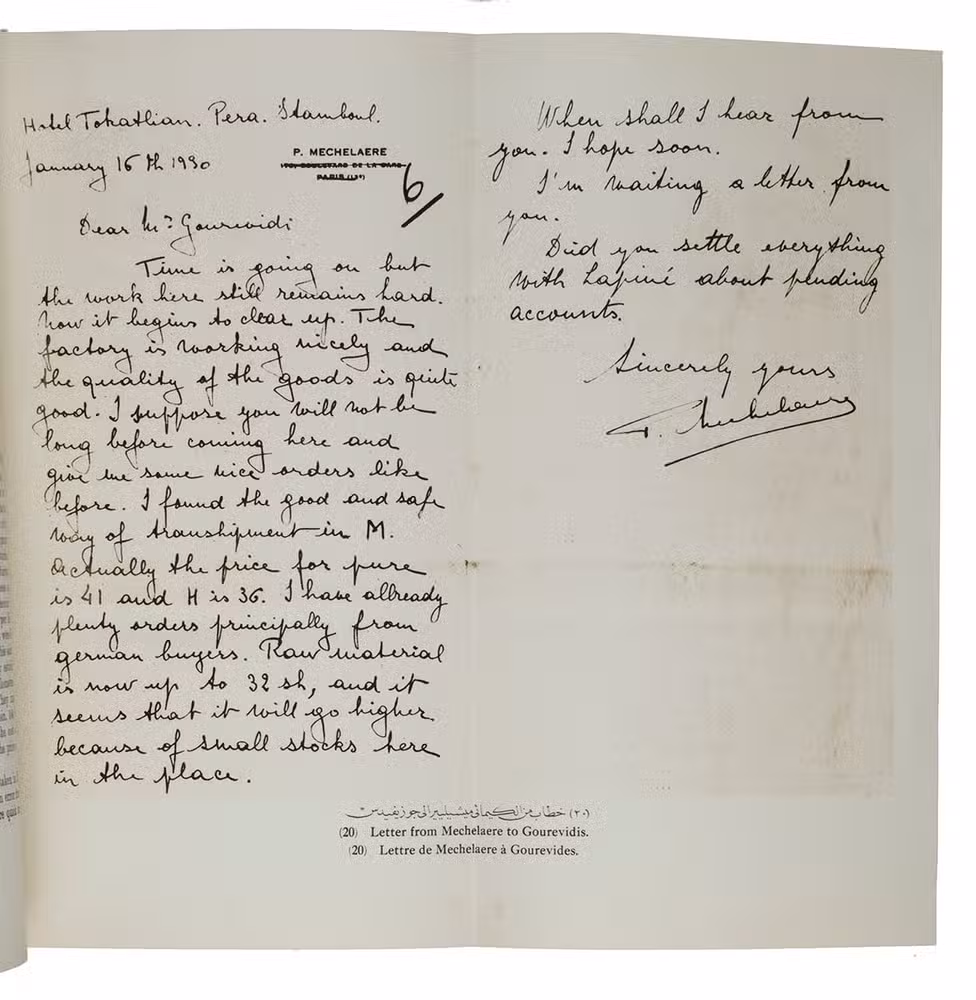 Hotel Tokatlian. Pera. Stamboul.
January 16th 1930
P. MECHELAERE
170, BOULEVARD DE LA GARE
PARIS (13e)
6/
Dear Mr Gourevidi
Time is going on but
the work here still remains hard.
now it begins to clear up. The
factory is working nicely and
the quality of the goods is quite
good. I suppose you will not be
long before coming here and
give me some nice orders like
before. I found the good and safe
way of transhipment in M.
Actually the price for pure
is 41 and H is 36. I have allready
plenty orders principally from
german buyers. Raw material
is now up to 32 sh, and it
seems that it will go higher
because of small stocks here
in the place.
When shall I hear from
you. I hope soon.
I'm waiting a letter from
you.
Did you settle everything
with Lapiné about pending
accounts.
Sincerely yours
P. Mechelaere
(٢٠) خطاب من الكيمائى ميشيليير الى جوزيفيدس
(20) Letter from Mechelaere to Gourevidis.
(20) Lettre de Mechelaere à Gourevides.